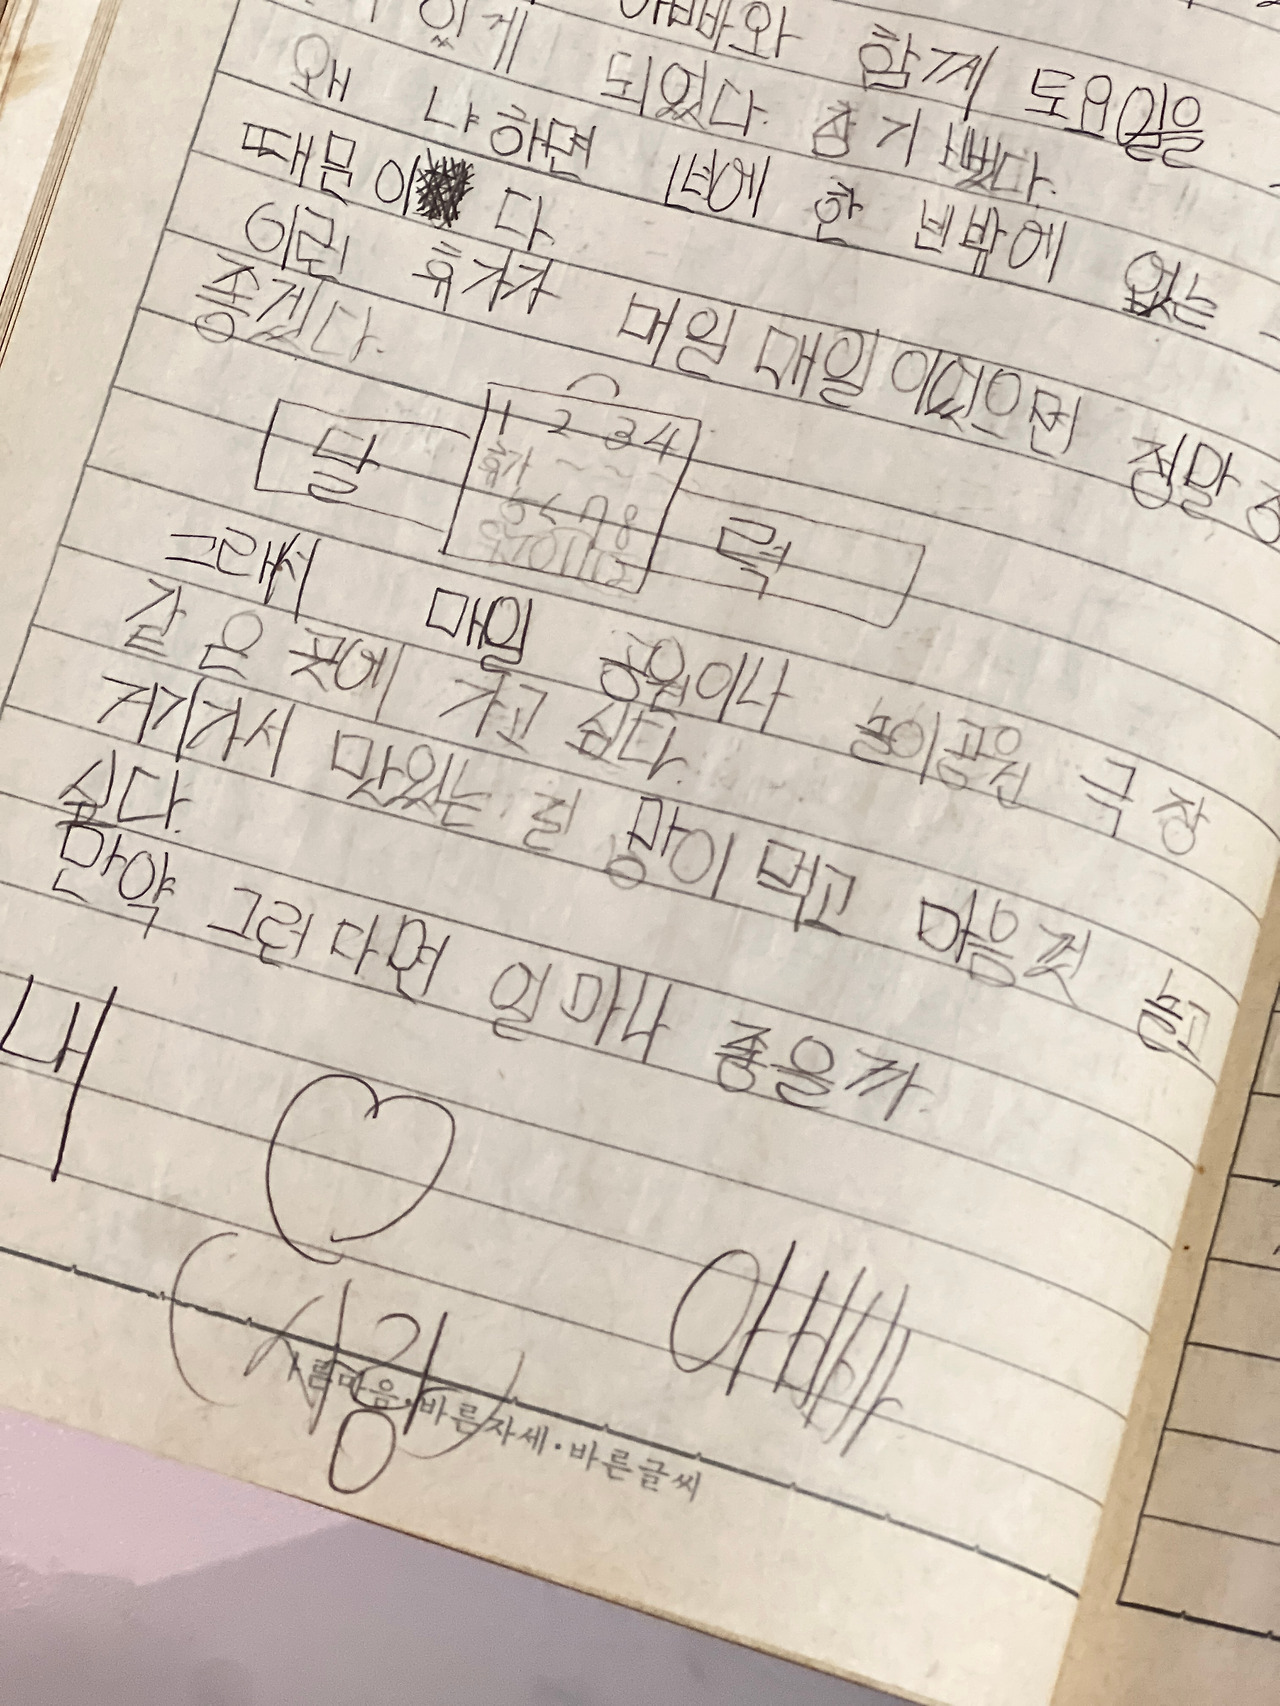 아빠와 함께 토요일을
있게 되었다. 참 기뻤다.
왜 냐하면 1년에 한 번밖에 없는
때문이 다.
이런 휴가가 매일 매일 이있으면 정말
좋겠다.
달 1 2 3 4 력
휴가 ~ ~
그래서 매일 공원이나 놀이공원 극장
같은 곳에 가고 싶다.
거기가서 맛있는 걸 많이 먹고 마음껏 놀고
싶다.
만약 그런다면 얼마나 좋을까.
내
(사랑) 아빠
바른마음·바른자세·바른글씨